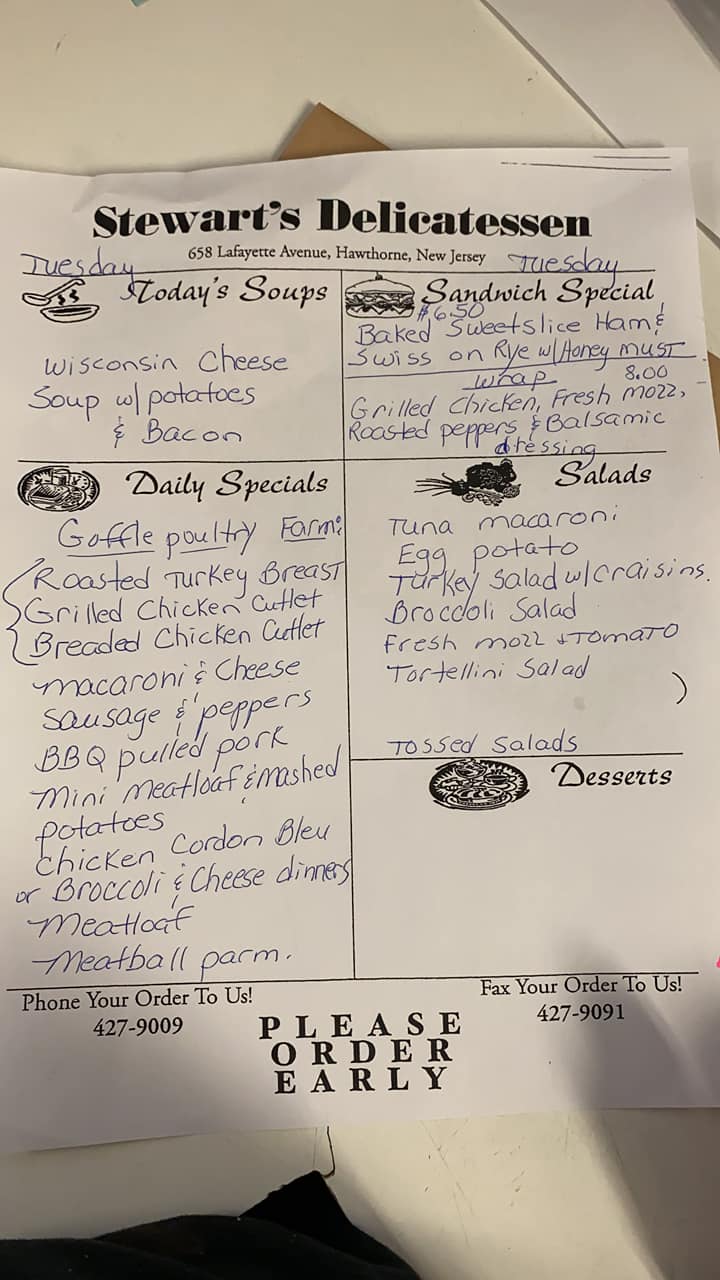 Stewart's Delicatessen
658 Lafayette Avenue, Hawthorne, New Jersey
Tuesday
Tuesday
Today's Soups
Wisconsin Cheese
Soup w/potatoes
& Bacon
Sandwich Special
$6.50
Baked Sweetslice Ham &
Swiss on Rye w/Honey must
wrap 8.00
Grilled Chicken, Fresh mozz,
Roasted peppers & Balsamic
dressing
Daily Specials
Goffle poultry Farm:
Roasted Turkey Breast
Grilled Chicken Cutlet
Breaded Chicken Cutlet
macaroni & Cheese
Sausage & peppers
BBQ pulled pork
Mini Meatloaf & mashed
potatoes
Chicken Cordon Bleu
or Broccoli & Cheese dinners
Meatloaf
Meatball parm.
Salads
Tuna macaroni
Egg potato
Turkey Salad w/craisins.
Broccoli Salad
Fresh mozz & Tomato
Tortellini Salad
Tossed Salads
Desserts
Phone Your Order To Us!
427-9009
Fax Your Order To Us!
427-9091
PLEASE
ORDER
EARLY